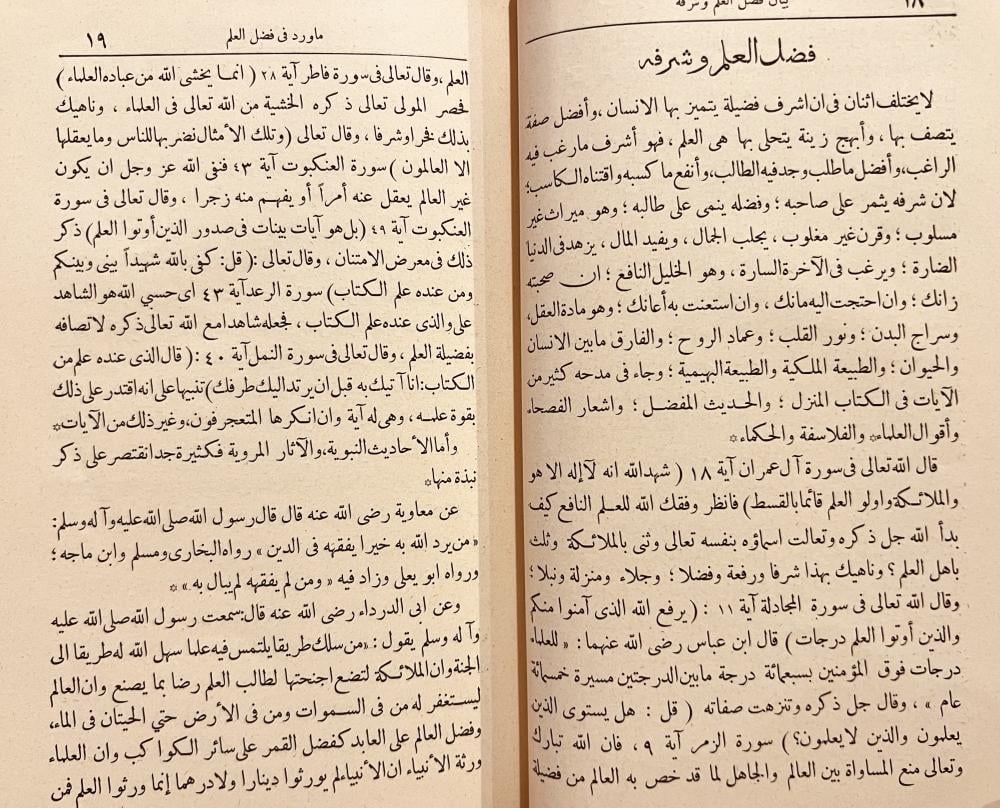 ١٨
بيان فضل العلم وشرفه
فضل العلم وشرفه
لا يختلف اثنان فى ان اشرف فضيلة يتميز بها الانسان ، وأفضل صفة
يتصف بها ، وأبهج زينة يتحلى بها هى العلم ، فهو أشرف مارغب فيه
الراغب، وأفضل ما طلب وجد فيه الطالب، وأنفع ما كسبه واقتناه الكاسب؛
لان شرفه يثمر على صاحبه ؛ وفضله ينمى على طالبه ؛ وهو ميراث غير
مسلوب ؛ وقرن غير مغلوب ، يجلب الجمال ، ويفيد المال ، يزهد فى الدنيا
الضارة ؛ ويرغب فى الآخرة السارة ، وهو الخليل النافع ؛ ان صحبته
زانك ؛ وان احتجت اليه مانك ، وان استعنت به أعانك ؛ وهو مادة العقل،
وسراج البدن ؛ ونور القلب ؛ وعماد الروح ؛ والفارق مابين الانسان
والحيوان ؛ والطبيعة الملكية والطبيعة البهيمية ؛ وجاء فى مدحه كثير من
الآيات فى الكتاب المنزل ؛ والحديث المفضل ؛ واشعار الفصحاء
وأقوال العلماء* والفلاسفة والحكماء*
قال الله تعالى فى سورة آل عمران آية ١٨ ( شهد الله انه لآ إله الا هو
والملائكة واولو العلم قائما بالقسط) فانظر وفقك الله للعلم النافع كيف
بدأ الله جل ذكره وتعالت اسماؤه بنفسه تعالى وثنى بالملائكة وثلث
باهل العلم ؟ وناهيك بهذا شرفا ورفعة وفضلا ؛ وجلاء ومنزلة ونبلا ؛
وقال الله تعالى فى سورة المجادلة آية ١١ : ( يرفع الله الذى آمنوا منكم
والذين أوتوا العلم درجات ) قال ابن عباس رضى الله عنهما : « للعلماء
درجات فوق المؤمنين بسبعمائة درجة مابين الدرجتين مسيرة خمسمائة
عام » ، وقال جل ذكره وتنزهت صفاته ( قل : هل يستوى الذين
يعلمون والذين لايعلمون؟ ) سورة الزمر آية ٩ ، فان الله تبارك
وتعالى منع المساواة بين العالم والجاهل لما قد خص به العالم من فضيلة
ماورد فى فضل العلم
١٩
العلم ، وقال تعالى فى سورة فاطر آية ٢٨ ( انما يخشى الله من عباده العلماء )
فحصر المولى تعالى ذكره الخشية من الله تعالى فى العلماء ، وناهيك
بذلك فخرا وشرفا ، وقال تعالى (وتلك الأمثال نضربها للناس وما يعقلها
الا العالمون ) سورة العنكبوت آية ٤٣ فنفى الله عز وجل ان يكون
غير العالم يعقل عنه أمراً أو يفهم منه زجرا ، وقال تعالى فى سورة
العنكبوت آية ٤٩ (بل هو آيات بينات فى صدور الذين أوتوا العلم) ذكر
ذلك فى معرض الامتنان ، وقال تعالى :( قل: كفى بالله شهيداً بينى وبينكم
ومن عنده علم الكتاب) سورة الرعد آية ٤٣ اى حسبي الله هو الشاهد
على والذى عنده علم الكتاب ، فجعله شاهدا مع الله تعالى ذكره لاتصافه
بفضيلة العلم ، وقال تعالى فى سورة النمل آية ٤٠ :( قال الذى عنده علم من
الكتاب: انا آتيك به قبل ان يرتد اليك طرفك) تنبيها على انه اقتدر على ذلك
بقوة علمه ، وهى له آية وان انكرها المتعجرفون، وغير ذلك من الآيات*
وأما الأحاديث النبوية، والآثار المروية فكثيرة جدا نقتصر على ذكر
نبذة منها*
عن معاوية رضى الله عنه قال قال رسول الله صلى الله عليه وآله وسلم:
« من يرد الله به خيرا يفقهه فى الدين » رواه البخارى ومسلم وابن ماجه ؛
ورواه ابو يعلى وزاد فيه « ومن لم يفقهه لم يبال به » *
وعن ابى الدرداء رضى الله عنه قال: سمعت رسول الله صلى الله عليه
وآله وسلم يقول : «من سلك طريقا يلتمس فيه علما سهل الله له طريقا الى
الجنة وان الملائكة لتضع اجنحتها لطالب العلم رضا بما يصنع وان العالم
ليستغفر له من فى السموات ومن فى الأرض حتي الحيتان فى الماء،
وفضل العالم على العابد كفضل القمر على سائر الكواكب وان العلماء
ورثة الأنبياء ان الأنبياء لم يورثوا دينارا ولا درهما إنما ورثوا العلم فمن